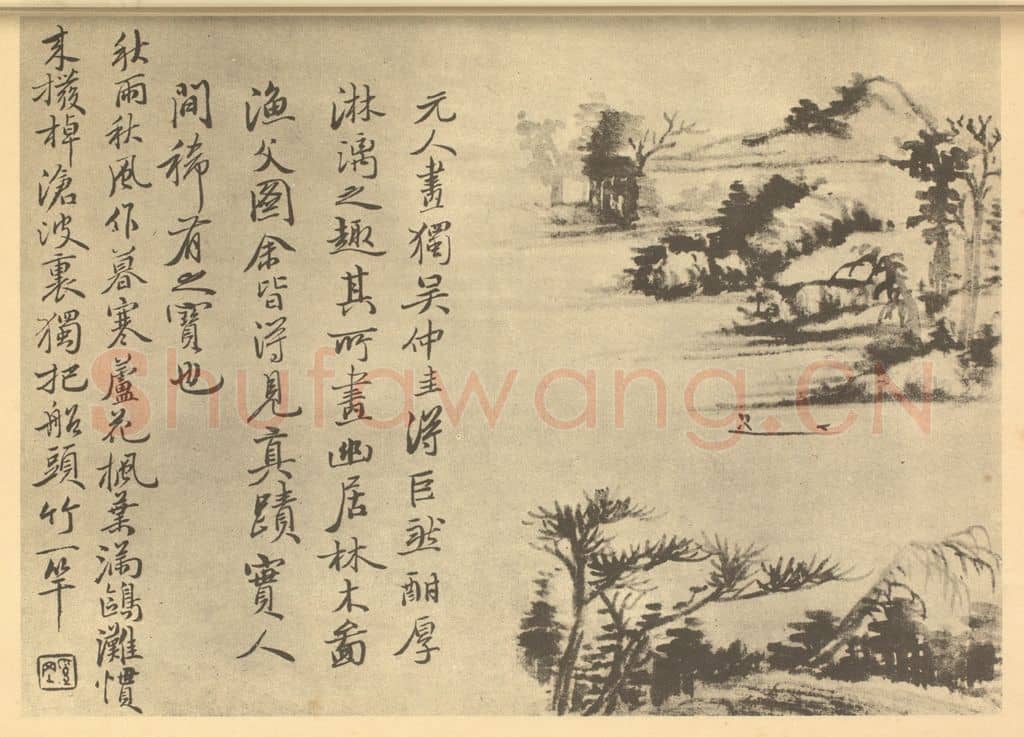 元人畫獨吴仲圭得巨然酣厚
淋漓之趣其所畫幽居林木啚
漁父图余皆得見真蹟實人
間稀有之寶也
秋雨秋風作暮寒蘆花楓葉滿鷗灘慣
来撥棹滄波裏獨把船頭竹一竿
Shufawang.CN